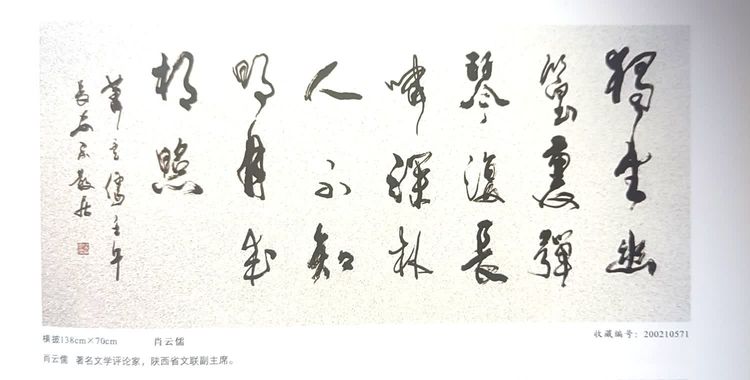 獨坐幽
篁裏彈
琴復長
嘯深林
人不知
明月來
相照
萧云儒壬午
長安不散居
横披138cm×70cm 肖云儒
收藏编号：200210571
肖云儒 著名文学评论家，陕西省文联副主席。